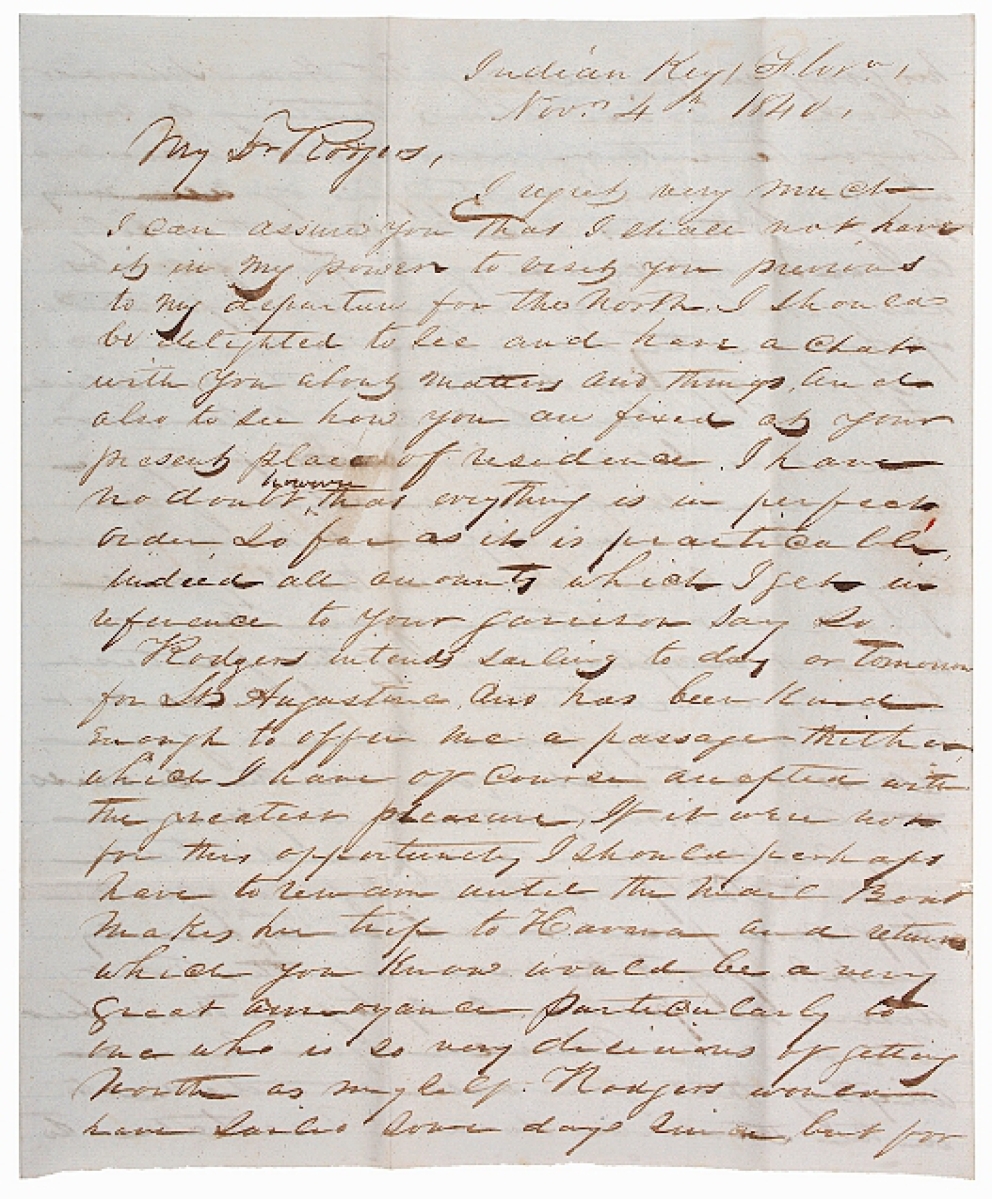 Indian Key, Flora,
Novr. 4th 1840,
My Dr Rodgers,
I regret very much
I can assure you that I shall not have
it in my power to visit you previous
to my departure for the North. I should
be delighted to see and have a chat
with you about matters and things, and
also to see how you are fixed at your
present place of residence. I have
however
no doubt, that everything is in perfect
order, so far as it is practicable,
indeed all accounts which I get in
reference to your garrison say so.
Rodgers intends sailing to day or tomorrow
for St Augustine, and has been kind
enough to offer me a passage thither
which I have of course accepted with
the greatest pleasure, If it were not
for this opportunity I should perhaps
have to remain until the Mail Boat
makes her trip to Havana and return,
which you know would be a very
great annoyance particularly to
one who is so very desirous of getting
North as myself. Rodgers would
have sailed some days since, but for